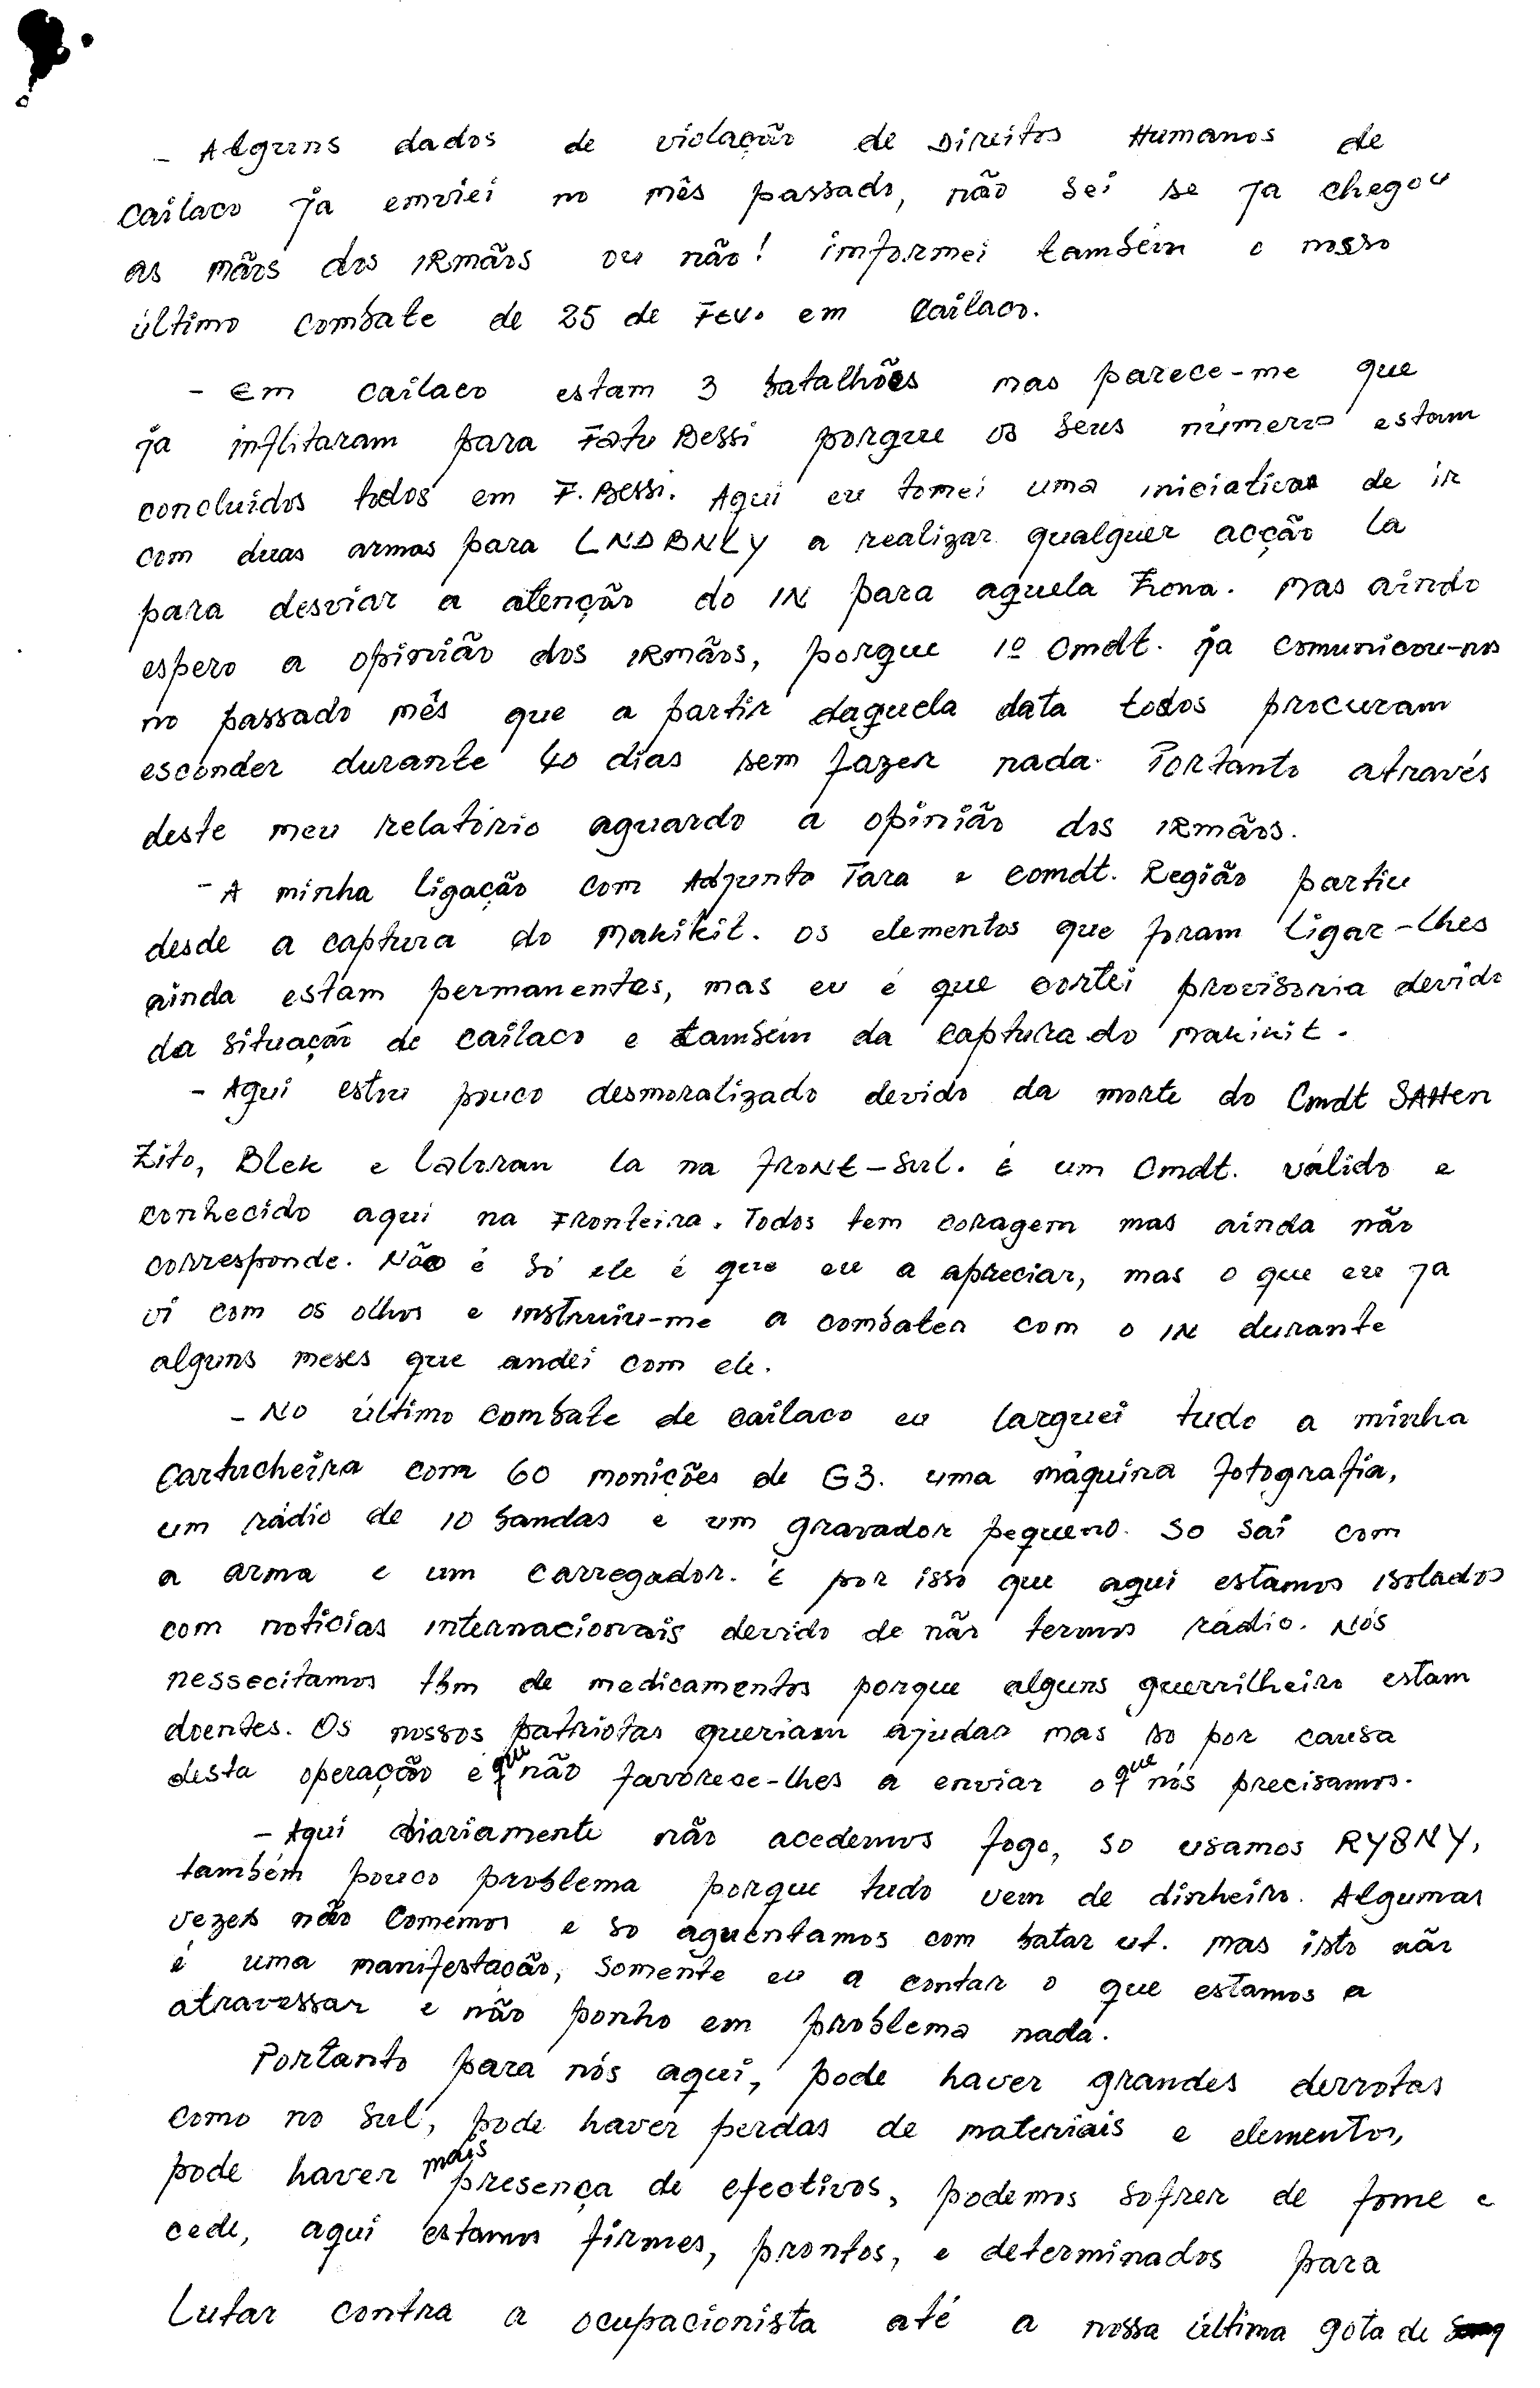 - Alguns dados de violação de Direitos Humanos de
Cailaco ja enviei no mês passado, não sei se ja chegou
as mãos dos IRmãos ou não! informei também o nosso
último combate de 25 de Fev. em Cailaco.
- Em Cailaco estam 3 batalhões mas parece-me que
ja inflitaram para Fatu Bessi porque os seus número estam
concluídos todos em F. Bessi. Aqui eu tomei uma iniciativa de ir
com duas armas para LNDBNLY a realizar qualquer acção la
para desviar a atenção do IN para aquela Zona. Mas aindo
espero a opinião dos IRmãos, porque 1º Cmdt. ja comunicou-nos
no passado mês que a partir daquela data todos procuram
esconder durante 40 dias sem fazer nada. Portanto através
deste meu relatório aguardo a opinião dos IRmãos.
- A minha ligação com Adjunto Tara e comdt. Região partiu
desde a captura do Makikit. os elementos que foram ligar-lhes
ainda estam permanentes, mas eu é que cortei provisoria devido
da situação de Cailaco e também da captura do Makikit.
- Aqui estou pouco desmoralizado devido da morte do Cmdt SAHen
Zito, Blek e Laloran la na fRoNt-Sul. É um Cmdt. válido e
conhecido aqui na Fronteira. Todos tem coragem mas ainda não
corresponde. Não é só ele é que eu a apreciar, mas o que eu ja
vi com os olhos e instruiu-me a combater com o IN durante
alguns meses que andei com ele.
- No último combate de Cailaco eu larguei tudo a minha
cartucheira com 60 monições de G3. uma máquina fotografia,
um rádio de 10 bandas e um gravador pequeno. so saí com
a arma e um carregador. É por isso que aqui estamos isolados
com noticias internacionais devido de não termos rádio. Nós
nessecitamos tbm de medicamentos porque alguns guerrilheiro estam
doentes. Os nossos patriotas queriam ajudar mas so por causa
desta operação é que não favorece-lhes a enviar o que nós precisamos.
- Aqui diariamente não acedemos fogo, so usamos RY8NY,
também pouco problema porque tudo vem de dinheiro. Algumas
vezes não comemos e so aguentamos com batar ut. mas isto não
é uma manifestação, somente eu a contar o que estamos a
atravessar e não ponho em problema nada.
Portanto para nós aqui, pode haver grandes derrotas
como no Sul, pode haver perdas de materiais e elementos,
pode haver mais presença de efectivos, podemos sofrer de fome e
cede, aqui estamos firmes, prontos, e determinados para
Lutar contra a ocupacionista até a nossa última gota de